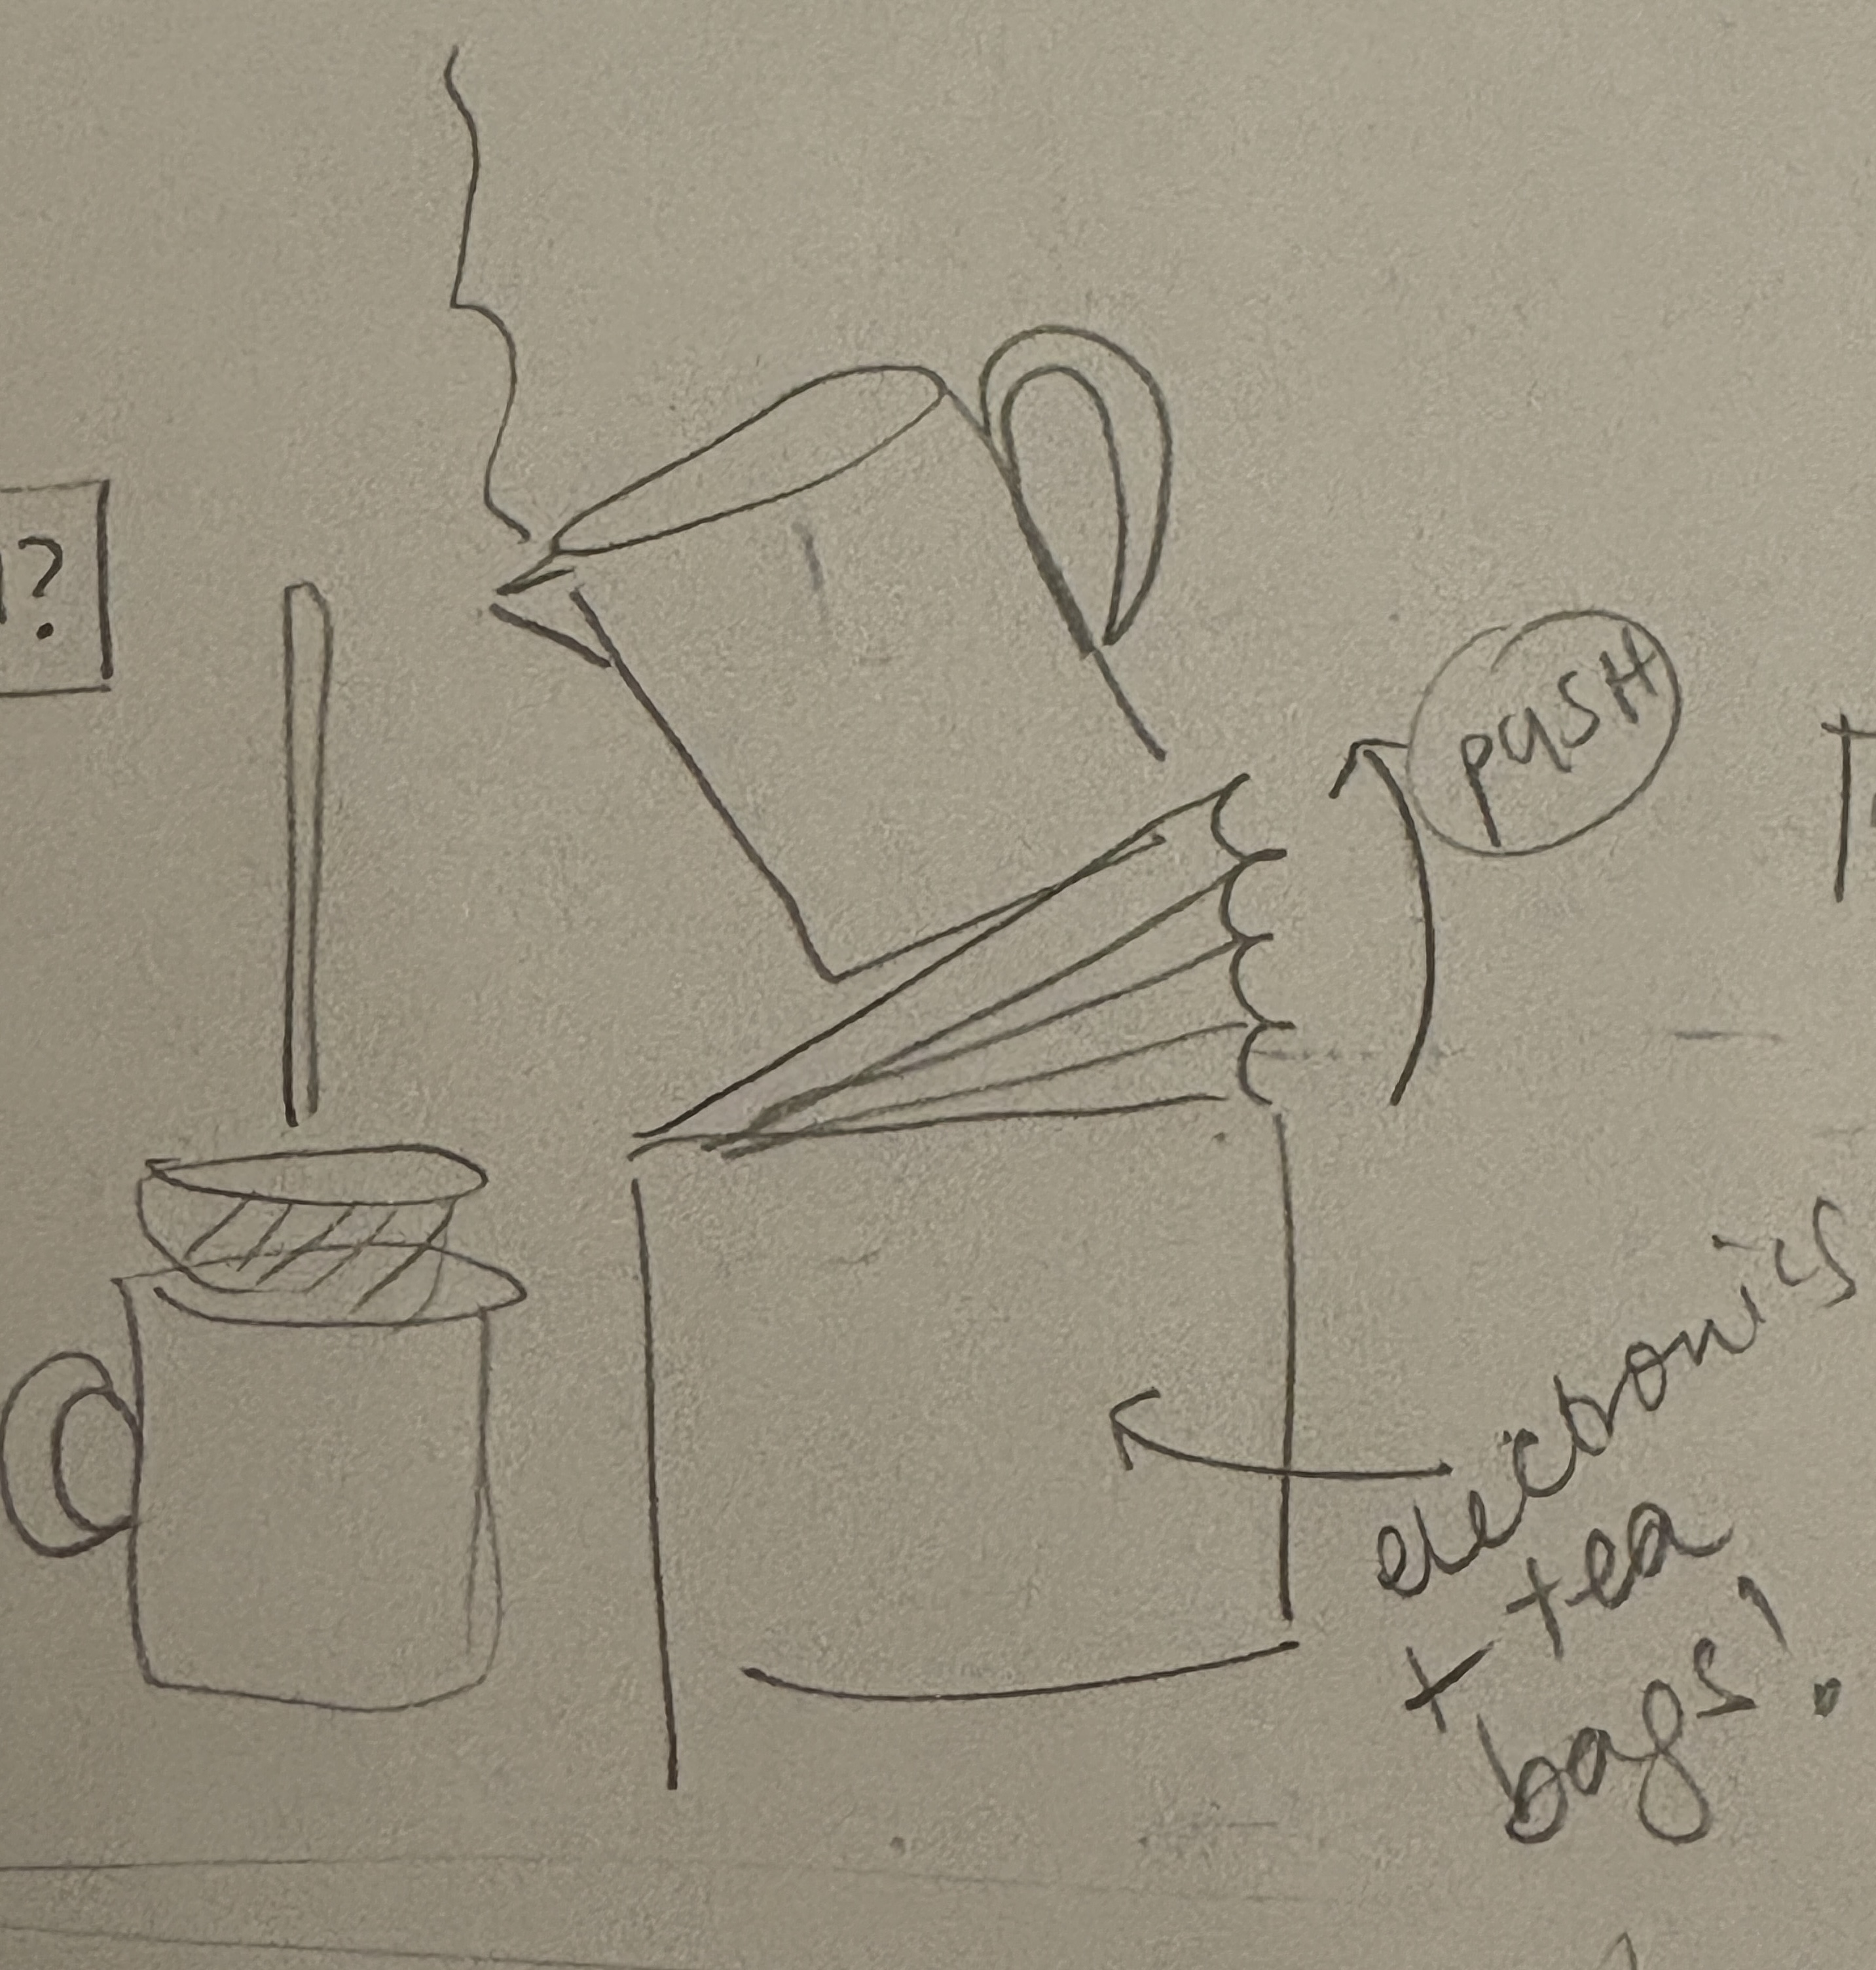 ?
PUSH
electronics
+ tea
bags!